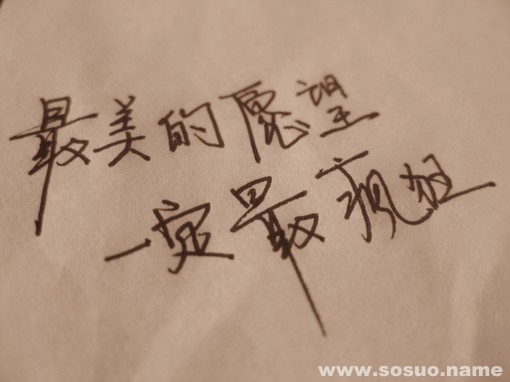 最美的愿望
一定最疯狂
www.sosuo.name